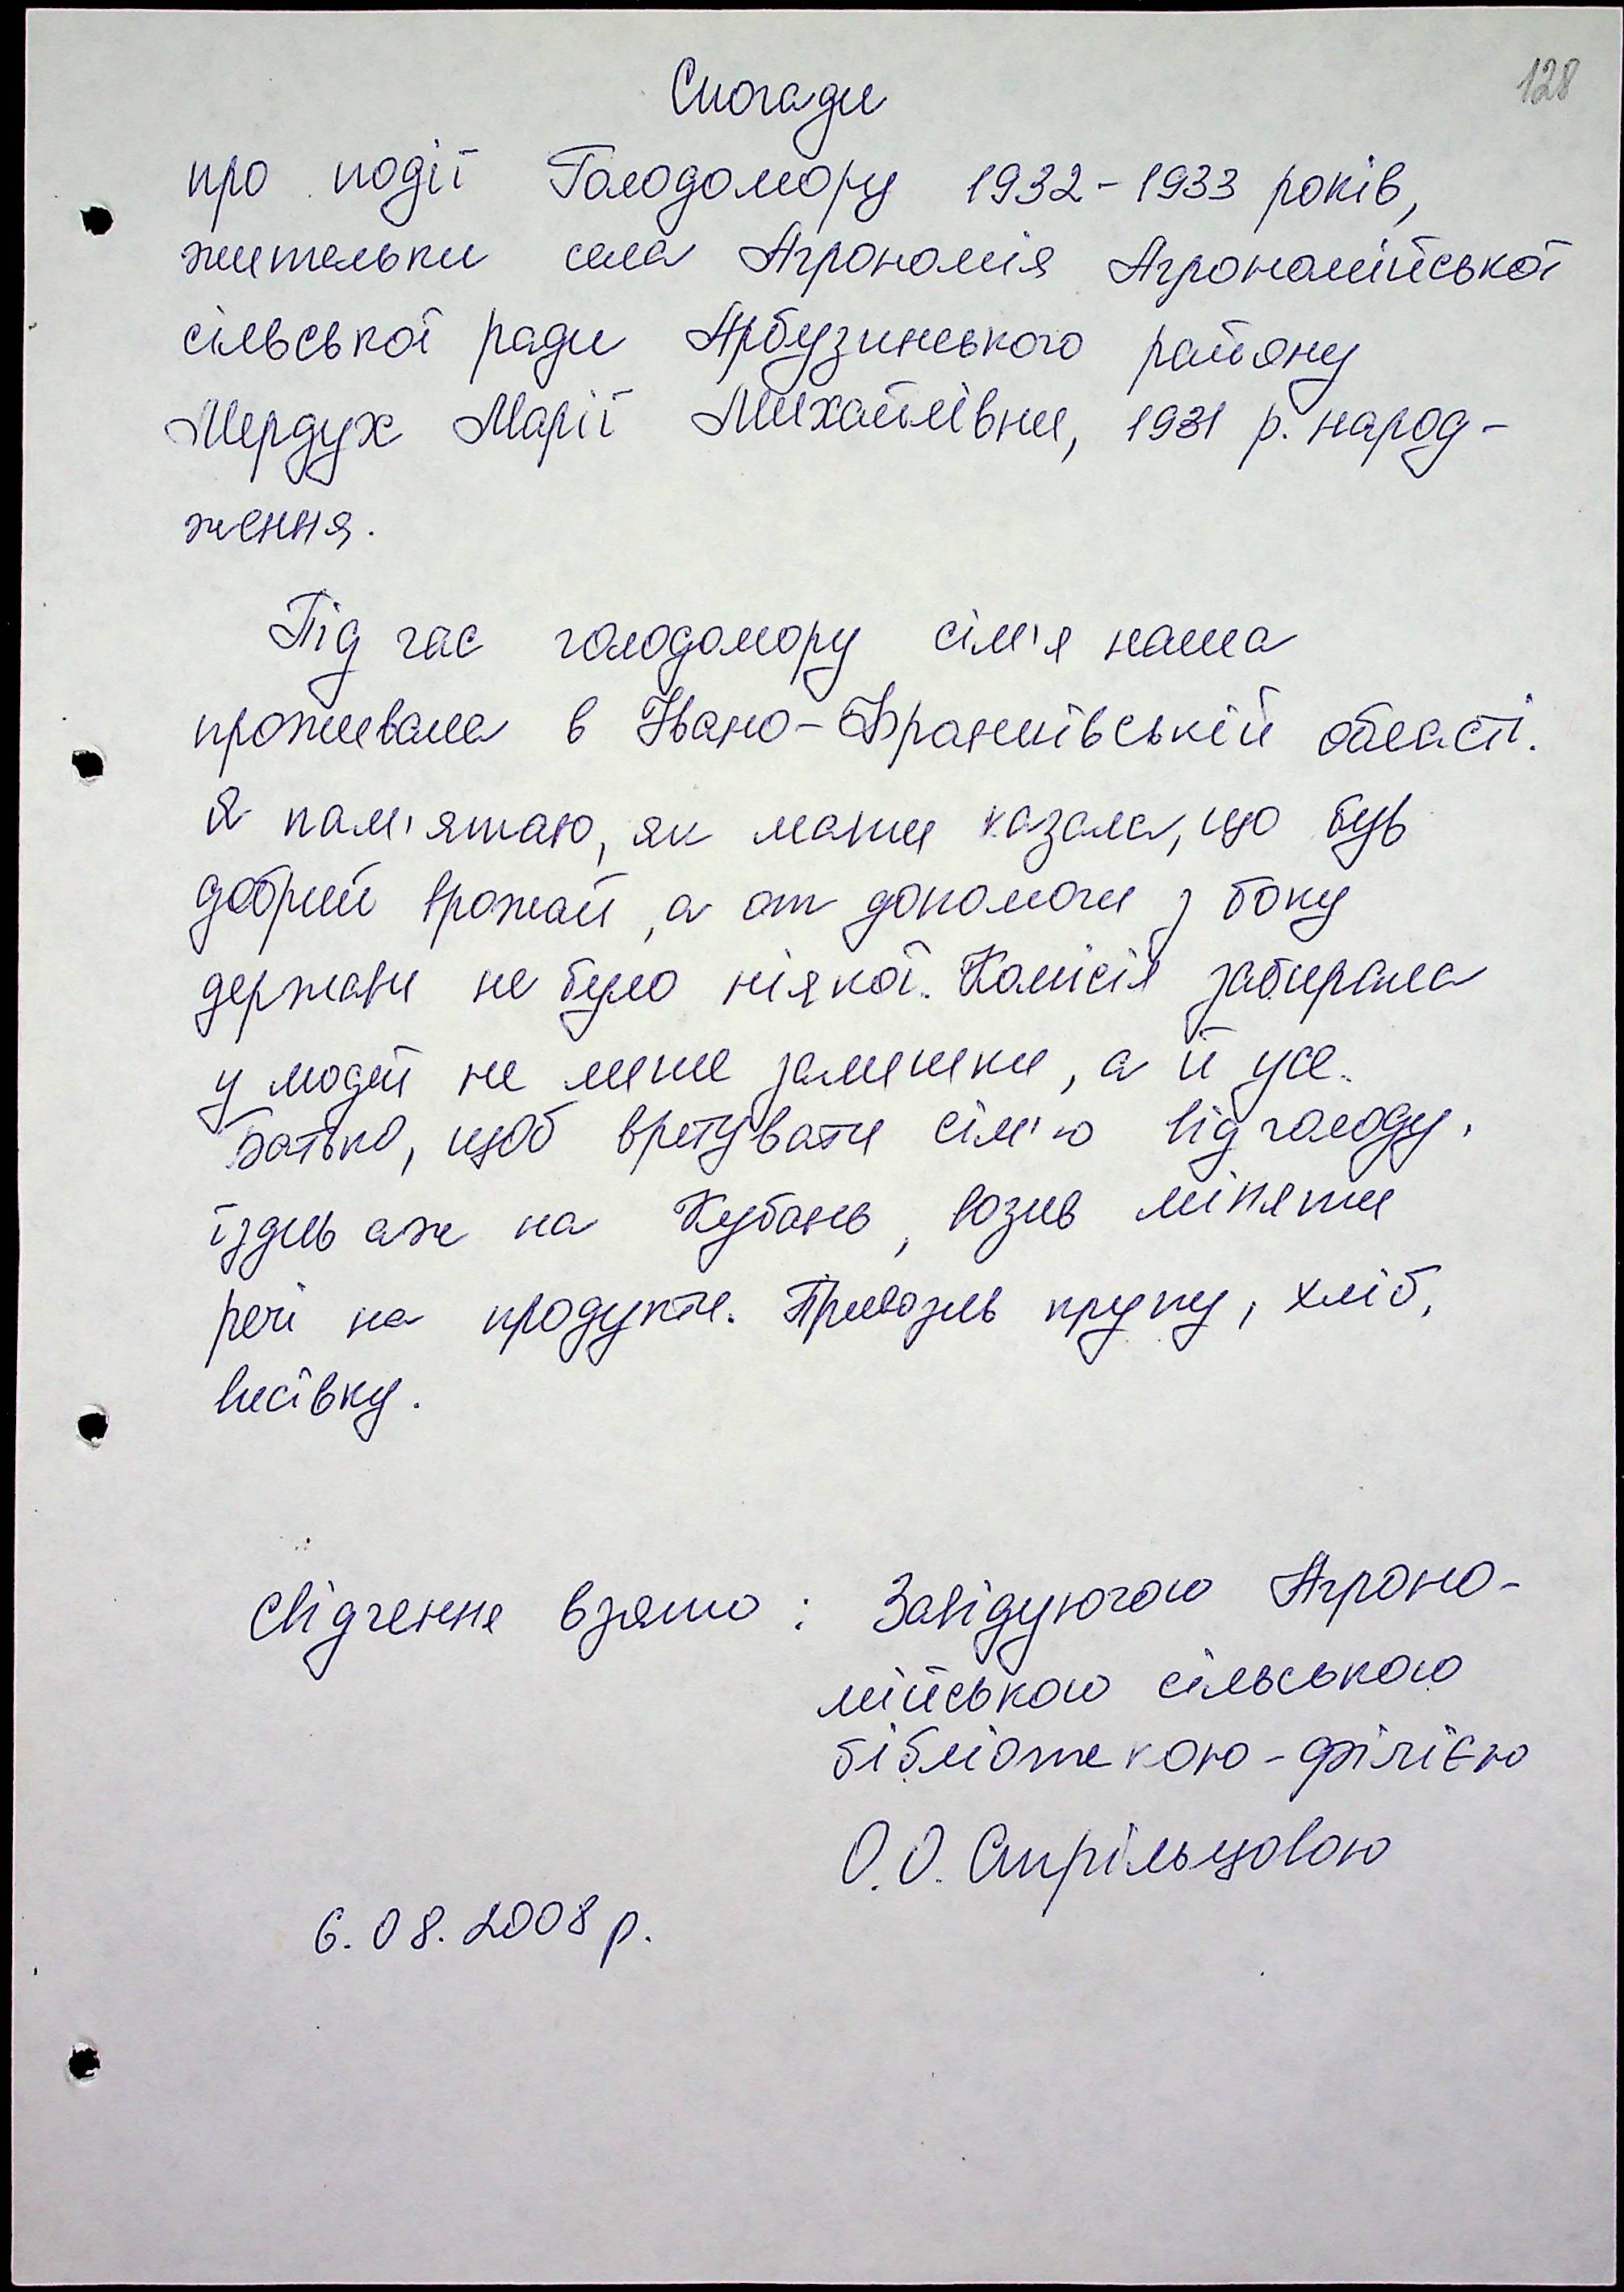 128
Спогади
про події Голодомору 1932-1933 років,
жительки села Агрономія Агрономійської
сільської ради Арбузинського району
Мердух Марії Михайлівни, 1931 р. народ-
ження.
Під час голодомору сім'я наша
проживала в Івано-Франківській області.
Я пам'ятаю, як мати казала, що був
добрий врожай, а от допомоги з боку
держави не було ніякої. Комісія забирала
у людей не лише залишки, а й усе.
Батько, щоб врятувати сім'ю від голоду,
їздив аж на Кубань, возив міняти
речі на продукти. Привозив крупу, хліб,
висівку.
Свідчення взято: Завідуючою Агроно-
мійською сільською
бібліотекою-філією
О.О. Стрільцовою
6.08.2008 р.